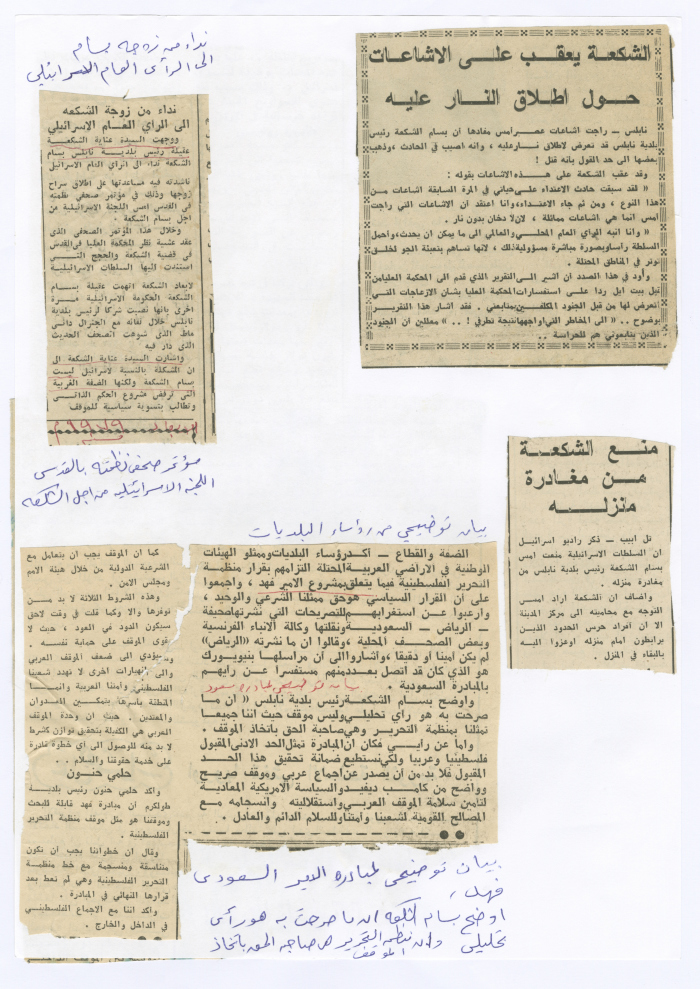 الشكعة يعقب على الاشاعات
حول اطلاق النار عليه
نابلس ــ راجت اشاعات عصر أمس مفادها ان بسام الشكعة رئيس
بلدية نابلس قد تعرض لاطلاق نار عليه ، وانه اصيب في الحادث وذهب
بعضها الى حد القول بانه قتل !
وقد عقب الشكعة على هذه الاشاعات بقوله :
« لقد سبقت حادث الاعتداء على حياتي في المرة السابقة اشاعات من
هذا النوع ، ومن ثم جاء الاعتداء، وانا اعتقد ان الاشاعات التي راجت
امس انما هي اشاعات مماثلة ، لان لا دخان بدون نار .
« وانا انبه الراي العام المحلي والعالمي الى ما يمكن ان يحدث، واحمل
السلطة راسا وبصورة مباشرة مسؤولية ذلك ، لانها تساهم بتعبئة الجو لخلق
توتر في المناطق المحتلة .
وأود في هذا الصدد ان اشير الى التقرير الذي قدم الى المحكمة العليا من
تيل بيت ايل ردا على استفسارات المحكمة العليا بشأن الازعاجات التي
اتعرض لها من قبل الجنود المكلفين بمتابعتي . فقد اشار هذا التقرير
بوضوح .. « الى المخاطر التي اواجهها نتيجة تطرفي ! .. » معللين ان الجنود
الذين يتابعونني هم للحراسة ..
نداء من زوجه بسام
الى الرأى العام الاسرائيلي
نداء من زوجة الشكعه
الى الراي العام الاسرائيلي
ووجهت السيدة عناية الشكعة
عقيلة رئيس بلدية نابلس بسام
الشكعة نداء الى الراي العام الاسرائيلي
ناشدته فيه مساعدتها على اطلاق سراح
زوجها وذلك في مؤتمر صحفي نظمته
في القدس امس اللجنة الاسرائيلية من
اجل بسام الشكعة .
وخلال هذا المؤتمر الصحفي الذي
عقد عشية نظر المحكمة العليا في القدس
في قضية الشكعة والحجج التي
استندت اليها السلطات الاسرائيلية
لابعاد الشكعة اتهمت عقيلة بسام
الشكعة الحكومة الاسرائيلية مرة
اخرى بانها نصبت شركا لرئيس بلدية
نابلس خلال لقائه مع الجنرال داني
ماط الذي شوهت الصحف الحديث
الذي دار فيه
واشارت السيدة عناية الشكعة الى
ان المشكلة بالنسبة لاسرائيل ليست
بسام الشكعة ولكنها الضفة الغربية
التي ترفض مشروع الحكم الذاتي
وتطالب بتسوية سياسية للموقف
١٩٧٩
مؤتمر صحفى نظمته بالقدس
اللجنة الاسرائيليه من اجل الشكعه
منع الشكعة
من مغادرة
منزله
تل ابيب ــ ذكر راديو اسرائيل
ان السلطات الاسرائيلية منعت امس
بسام الشكعة رئيس بلدية نابلس من
مغادرة منزله .
واضاف ان الشكعة اراد امس
التوجه مع محاميته الى مركز المدينة
الا ان افراد حرس الحدود الذين
يرابطون امام منزله اوعزوا اليه
بالبقاء في المنزل .
بيان توضيحي من رؤساء البلديات
الضفة والقطاع ــ أكد رؤساء البلديات وممثلو الهيئات
الوطنية في الاراضي العربية المحتلة التزامهم بقرار منظمة
التحرير الفلسطينية فيما يتعلق بمشروع الامير فهد ، واجمعوا
على ان القرار السياسي هو حق ممثلنا الشرعي والوحيد ،
واعربوا عن استغرابهم للتصريحات التي نشرتها صحيفة
ــ الرياض ــ السعودية ونقلتها وكالة الانباء الفرنسية
وبعض الصحف المحلية ، وقالوا ان ما نشرته «الرياض»
لم يكن امينا او دقيقا ، واشاروا الى ان مراسلها بنيويورك
هو الذي كان قد اتصل بعدد منهم مستفسرا عن رايهم
بالمبادرة السعودية .
بيان توضيحي لمبادره سعود
واوضح بسام الشكعة رئيس بلدية نابلس « ان ما
صرحت به هو رأي تحليلي وليس موقف حيث اننا جميعا
نمثلنا بمنظمة التحرير وهي صاحبة الحق باتخاذ الموقف .
واما عن رايي فكان ان المبادرة تمثل الحد الادنى المقبول
فلسطينيا وعربيا ولكي نستطيع ضمانة تحقيق هذا الحد
المقبول فلا بد من ان يصدر عن اجماع عربي وموقف صريح
وواضح من كامب ديفيد والسياسة الامريكية المعادية
لتأمين سلامة الموقف العربي واستقلاليته وانسجامه مع
المصالح القومية لشعبنا وامتنا وللسلام الدائم والعادل .
كما ان الموقف يجب ان يتعامل مع
الشرعية الدولية من خلال هيئة الامم
ومجلس الامن .
وهذه الشروط الثلاثة لا بد من
توفرها والا وكما قلت في وقت لاحق
سيكون الدود في العود ، حيث لا
يقوى الموقف على حماية نفسه .
وسيؤدي الى ضعف الموقف العربي
والى انهيارات اخرى لا تهدد شعبنا
الفلسطيني وامتنا العربية وانما
المنطقة بأسرها بتمكين العدوان
والمعتدين . حيث ان وحدة الموقف
العربي هي الكفيلة بتحقيق توازن كشرط
لا بد منه للوصول الى اي خطوة قادرة
على خدمة حقوقنا والسلام . .
حلمي حنون
وأكد حلمي حنون رئيس بلدية
طولكرم ان مبادرة فهد قابلة للبحث
وموقفنا هو مثل موقف منظمة التحرير
الفلسطينية .
وقال ان خطواتنا يجب ان تكون
متناسقة ومنسجمة مع خط منظمة
التحرير الفلسطينية وهي لم تعط بعد
قرارها النهائي في المبادرة .
وأكد اننا مع الاجماع الفلسطيني
في الداخل والخارج .
بيان توضيحي لمبادرة الامير السعودى
فهد ،
اوضح بسام الشكعه ان ما صرحت به هو رأى
تحليلي وان منظمه التحرير هى صاحبه الحق باتخاذ
الموقف